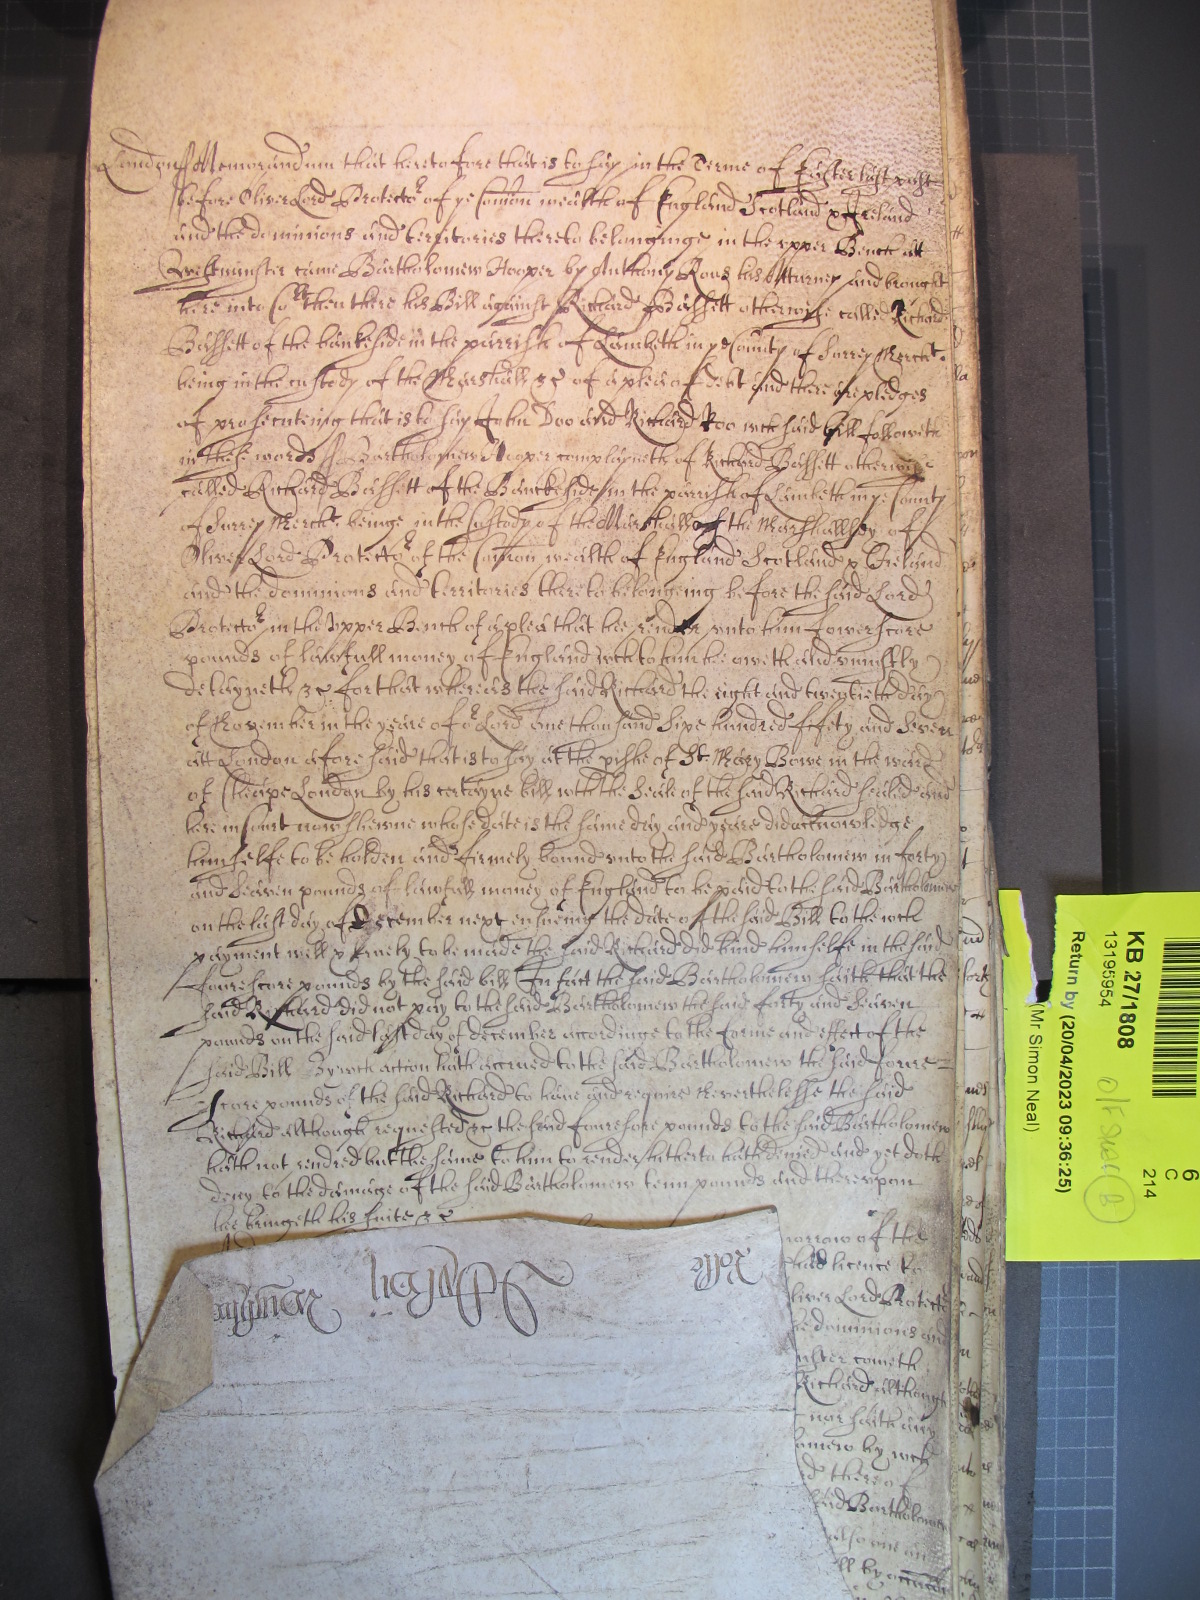 London ss Memorandum that heretofore that is to say in the Terme of Easter last past
before Oliver Lord Protector of ye Comon wealth of England Scotland & Ireland
and the dominions and territories thereto belonginge in the upper Bench att
Westminster came Bartholomew Hooper by Anthony Rous his Atturney and brought
here into Cort then there his Bill against Richard Bassett otherwise called Richard
Bassett of the bankeside in the parrish of Lambeth in ye County of Surrey Mercht.
being in the custody of the Marshall &c of a plea of debt and there are pledges
of prosecuteing that is to say John Doo and Richard Roo wch said bill followeth
in these words ss Bartholomew Hooper complayneth of Richard Bassett otherwise
called Richard Bassett of the Banckeside in the parrish of Lambeth in ye County
of Surrey Mercht. beinge in the Custody of the Marshall of the Marshallsey of
Oliver Lord Protector of the Comon wealth of England Scotland & Ireland
and the dominions and territories thereto belongeing before the said Lord
Protector in the Upper Bench of a plea that hee render unto him fowerscore
pounds of lawfull money of England wch to him hee oweth and uniustly
delayneth &c for that whereas the said Richard the eight and twentieth day
of November in the yeare of or Lord one thousand sixe hundred fifety and seven
att London aforesaid that is to say at the pishe of St. Mary Bowe in the ward
of Cheape London by his certayne bill wth the seale of the said Richard sealed and
here in Court now shewne whose date is the same day and yeare did acknowledge
himselfe to be holden and firmely bound unto the said Bartholomew in forty
and seaven pounds of lawfull money of England to be paid to the said Bartholomew
on the last day of December next ensueing the date of the said Bill to the wch
payment well & truely to be made the said Richard did bind himselfe in the said
foure score pounds by the said bill In fact the said Bartholomew saith that the
said Richard did not pay to the said Bartholomew the said forty and seaven
pounds on the said last day of december accordinge to the forme and effect of the
said Bill By wch action hath accrued to the said Bartholomew the said foure
score pounds of the said Richard to have and require Neverthelesse the said
Richard although requested &c the said fourescore pounds to the said Bartholomew
hath not rendred but the same to him to render hitherto hath denied and yet doth
deny to the damage of the said Bartholomew tenn pounds and thereupon
hee bringeth his suite &c
morrow of the
had licence to
liver Lord Protector
he dominions and
nster cometh
Richard although
nor saith any
omew by wch
d thereof
said Bartholomew
also one an
ll by
Rolle
KB 27/1808
13195954
Return by (20/04/2023 09:36:25)
(Mr Simon Neal)
6
C
214